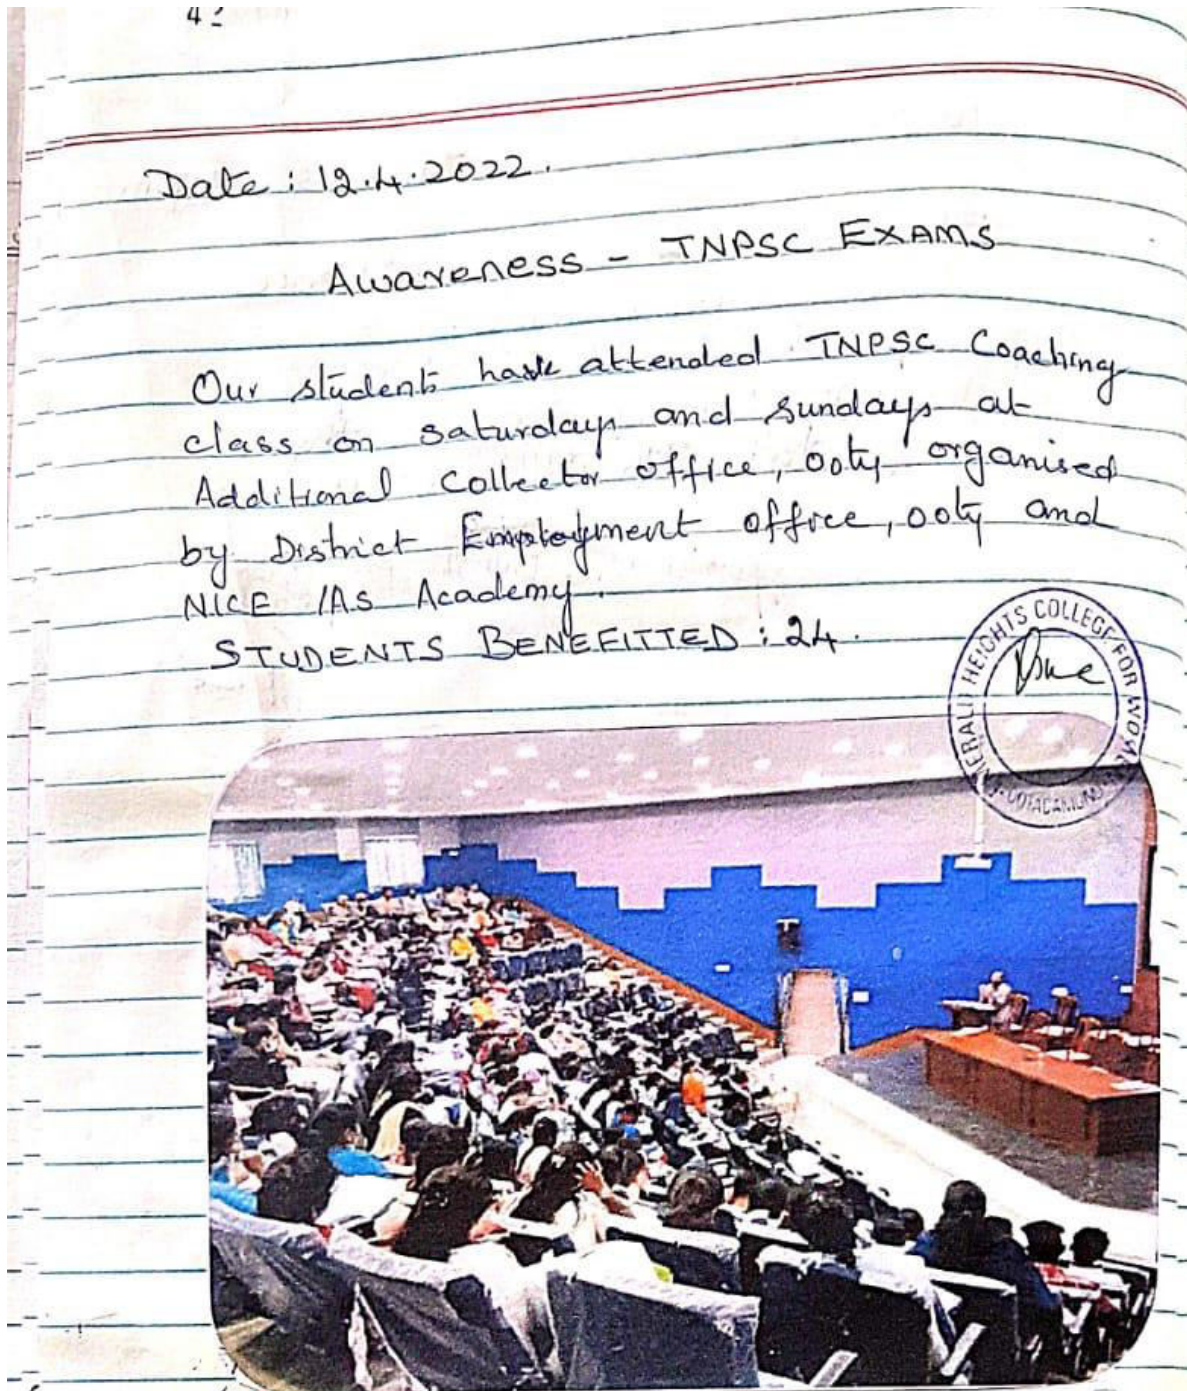 Date : 12.4.2022.
Awareness - TNPSC EXAMS
Our students have attended TNPSC Coaching
class on saturdays and sundays at
Additional Collector office, ooty organised
by District Employment office, ooty and
NICE IAS Academy.
STUDENTS BENEFITTED : 24.
EMERALD HEIGHTS COLLEGE FOR WOMEN